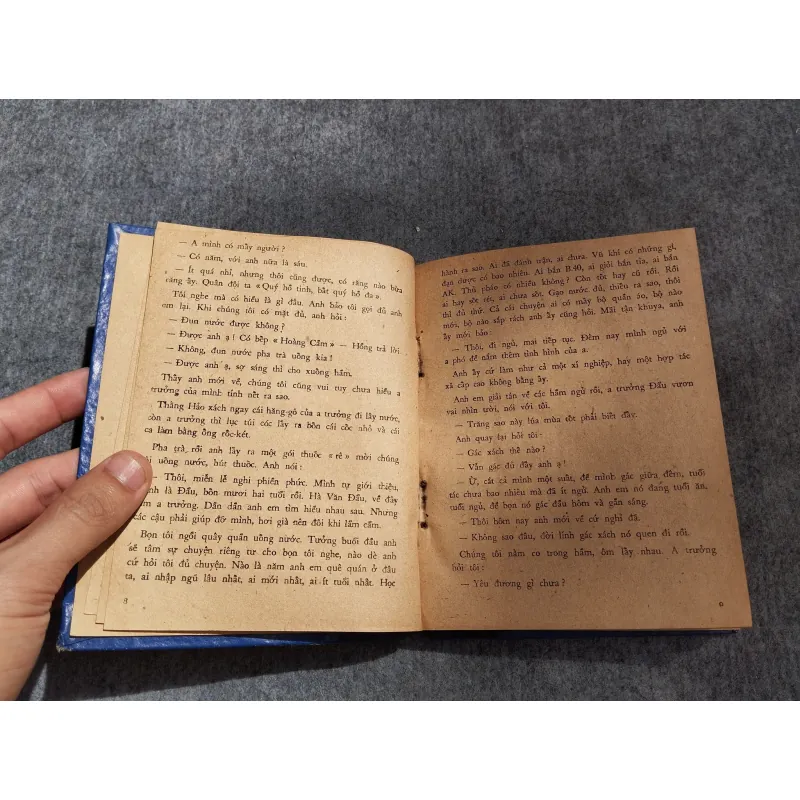 — A mình có mấy người ?
— Có năm, với anh nữa là sáu.
— Ít quá nhỉ, nhưng thôi cũng được, có răng nào bừa
răng ấy. Quân đội ta « Quý hồ tinh, bất quý hồ đa ».
Tôi nghe mà có hiểu là gì đâu. Anh bảo tôi gọi đủ anh
em lại. Khi chúng tôi có mặt đủ, anh hỏi :
— Đun nước được không ?
— Được anh ạ ! Có bếp « Hoàng Cầm » — Hồng trả lời.
— Không, đun nước pha trà uống kia !
— Được anh ạ, sợ sáng thì cho xuống hầm.
Thấy anh mới về, chúng tôi cũng vui tuy chưa hiểu a
trưởng của mình tính nết ra sao.
Thằng Hảo xách ngay cái hăng-gô của a trưởng đi lấy nước,
còn a trưởng thì lục túi cóc lấy ra bốn cái cốc nhỏ và cái
ca làm bằng ống rốc-két.
Pha trà rồi anh lấy ra một gói thuốc « rê » mời chúng
tôi uống nước, hút thuốc. Anh nói :
— Thôi, miễn lễ nghi phiền phức. Mình tự giới thiệu,
mình là Đấu, bốn mươi hai tuổi rồi. Hà Văn Đấu, về đây
làm a trưởng. Dần dần anh em tìm hiểu nhau sau. Nhưng
các cậu phải giúp đỡ mình, hơi già nên đôi khi lẩm cẩm.
Bọn tôi ngồi quây quần uống nước. Tưởng buổi đầu anh
sẽ tâm sự chuyện riêng tư cho bọn tôi nghe, nào dè anh
cứ hỏi tôi đủ chuyện. Nào là năm anh em quê quán ở đâu
ta, ai nhập ngũ lâu nhất, ai mới nhất, ai ít tuổi nhất. Học
8
hành ra sao. Ai đã đánh trận, ai chưa. Vũ khí có những gì,
đạn được có bao nhiêu. Ai bắn B.40, ai giỏi bắn tỉa, ai bắn
AK. Thủ pháo có nhiều không ? Còn tốt hay cũ rồi. Rồi
ai hay sốt rét, ai chưa sốt. Gạo nước đủ, thiếu ra sao, thôi
thì đủ thứ. Cả cái chuyện ai có mấy bộ quần áo, bộ nào
mới, bộ nào sắp rách anh ấy cũng hỏi. Mãi tận khuya, anh
ấy mới bảo :
— Thôi, đi ngủ, mai tiếp tục. Đêm nay mình ngủ với
a phó để nắm thêm tình hình của a.
Anh ấy cứ làm như cả một xí nghiệp, hay một hợp tác
xã cấp cao không bằng ấy.
Anh em giải tán về các hầm ngủ rồi, a trưởng Đấu vươn
vai nhìn trời, nói với tôi.
— Trăng sao này lúa mùa tốt phải biết đây.
Anh quay lại hỏi tôi :
— Gác xách thế nào ?
— Vẫn gác đủ đấy anh ạ !
— Ừ, cắt cả mình một suất, để mình gác giữa đêm, tuổi
tác chưa bao nhiêu mà đã ít ngủ. Anh em nó đang tuổi ăn,
tuổi ngủ, để bọn nó gác đầu hôm và gần sáng.
— Thôi hôm nay anh mới về cứ nghỉ đã.
— Không sao đâu, đời lính gác xách nó quen đi rồi.
Chúng tôi nằm co trong hầm, ôm lấy nhau. A trưởng
hỏi tôi :
— Yêu đương gì chưa ?
9